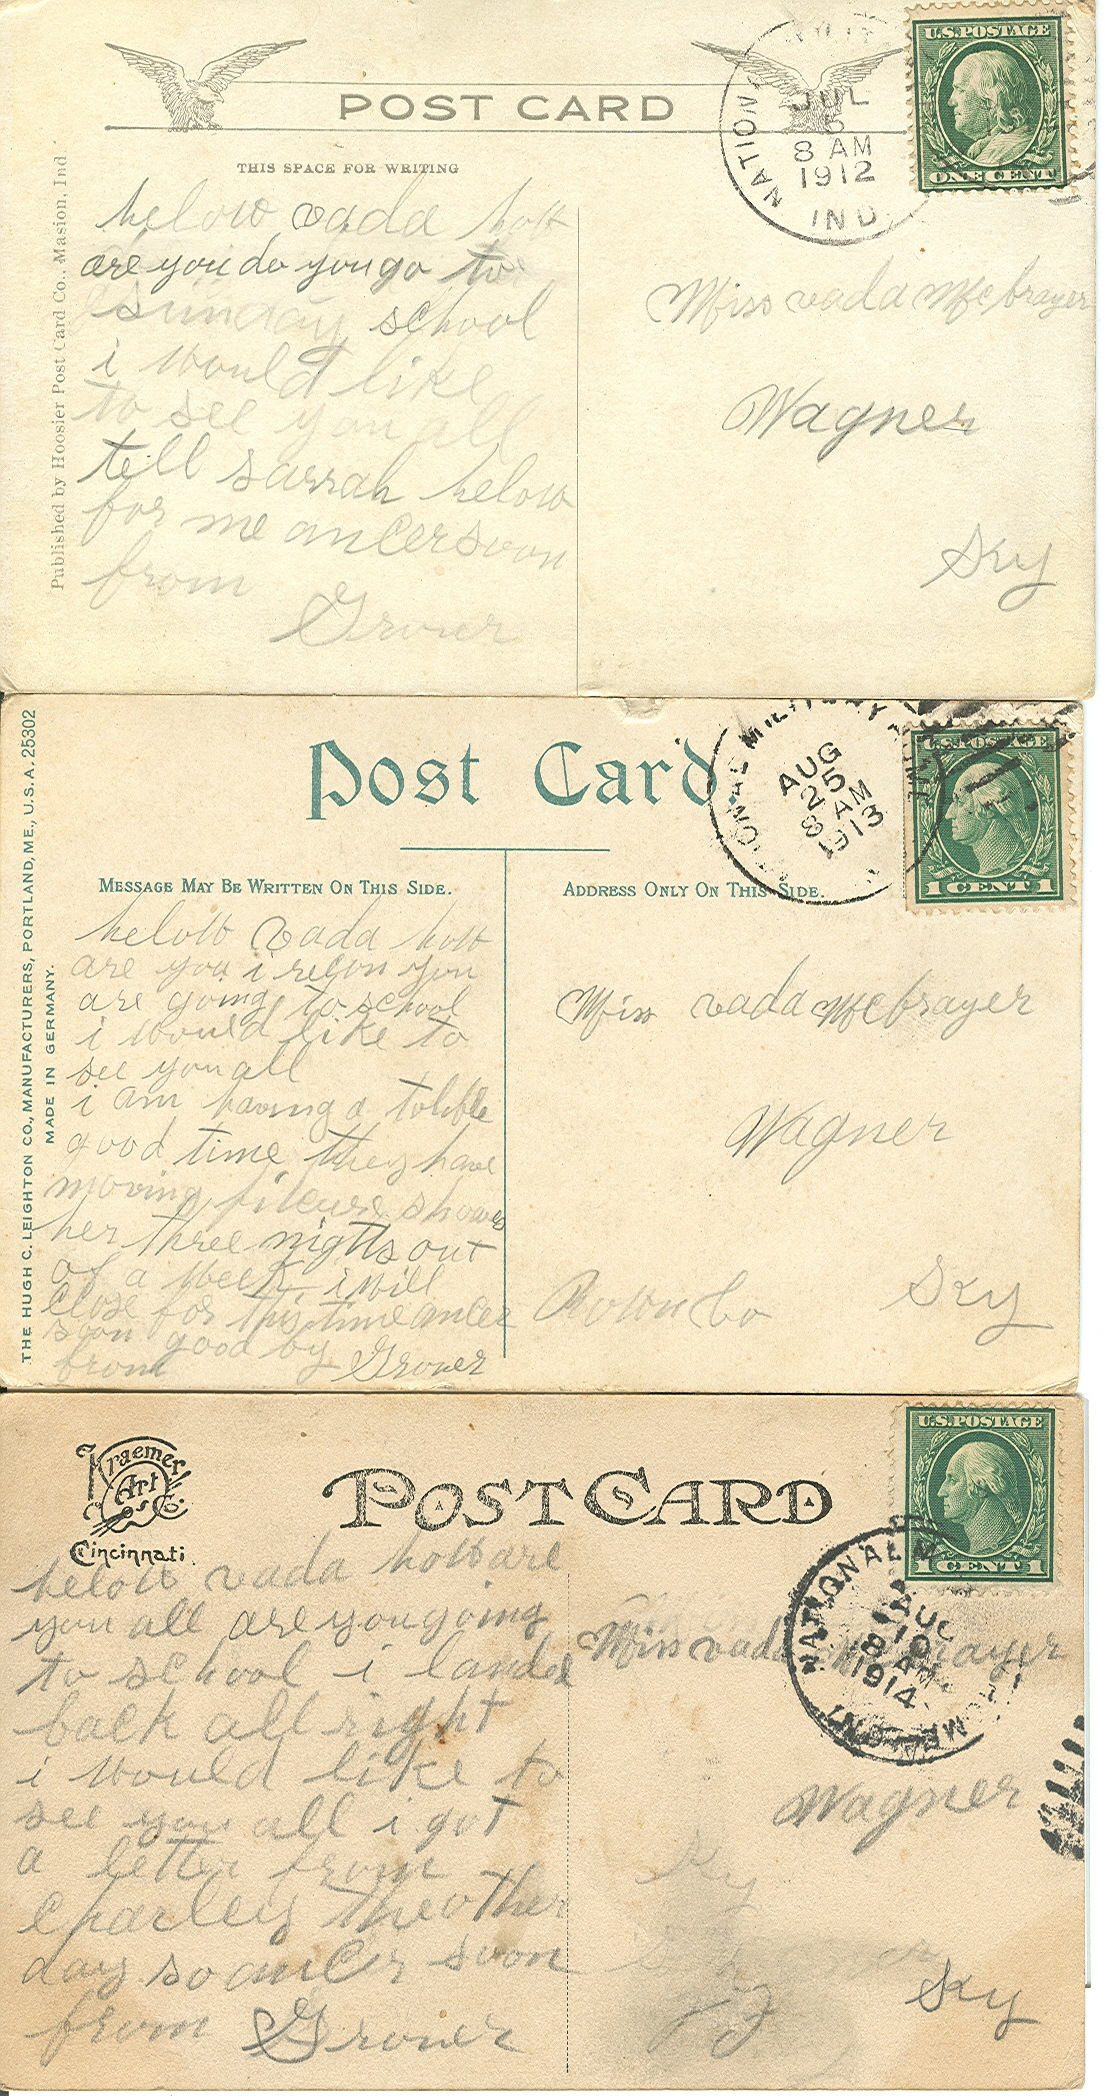 POST CARD
THIS SPACE FOR WRITING
Published by Hoosier Post Card Co., Masion, Ind
NATION
JUL
5
8 AM
1912
IND
U.S. POSTAGE
ONE CENT
helow vada hott
are you do you go to
sunday school
i would like
to see you all
tell sarrah helow
for me ancer soon
from
Grover
Miss vada Mcbrayer
Wagner
Ky
Post Card.
THE HUGH C. LEIGHTON CO., MANUFACTURERS, PORTLAND, ME., U.S.A. 25302
MADE IN GERMANY.
MESSAGE MAY BE WRITTEN ON THIS SIDE.
ADDRESS ONLY ON THIS SIDE.
TIONAL MILITARY HOME
AUG
25
8 AM
1913
U.S. POSTAGE
1 CENT 1
helow vada how
are you i recon you
are going to school
i would like to
see you all
i am having a tolible
good time they have
moving picture shows
her three nigtts out
of a week i will
close for this time ancer
soon good by
from Grover
Miss vada Mcbrayer
Wagner
Rown Co
Ky
Kraemer
Art
Co.
Cincinnati.
POST CARD
U.S. POSTAGE
1 CENT 1
NATIONAL M
AUG
10
8 AM
1914
helow vada how are
you all are you going
to school i landed
back all right
i would like to
see you all i got
a letter from
charley the other
day so ancer soon
from Grover
Miss vada Mcbrayer
Wagner
Ky
Ky